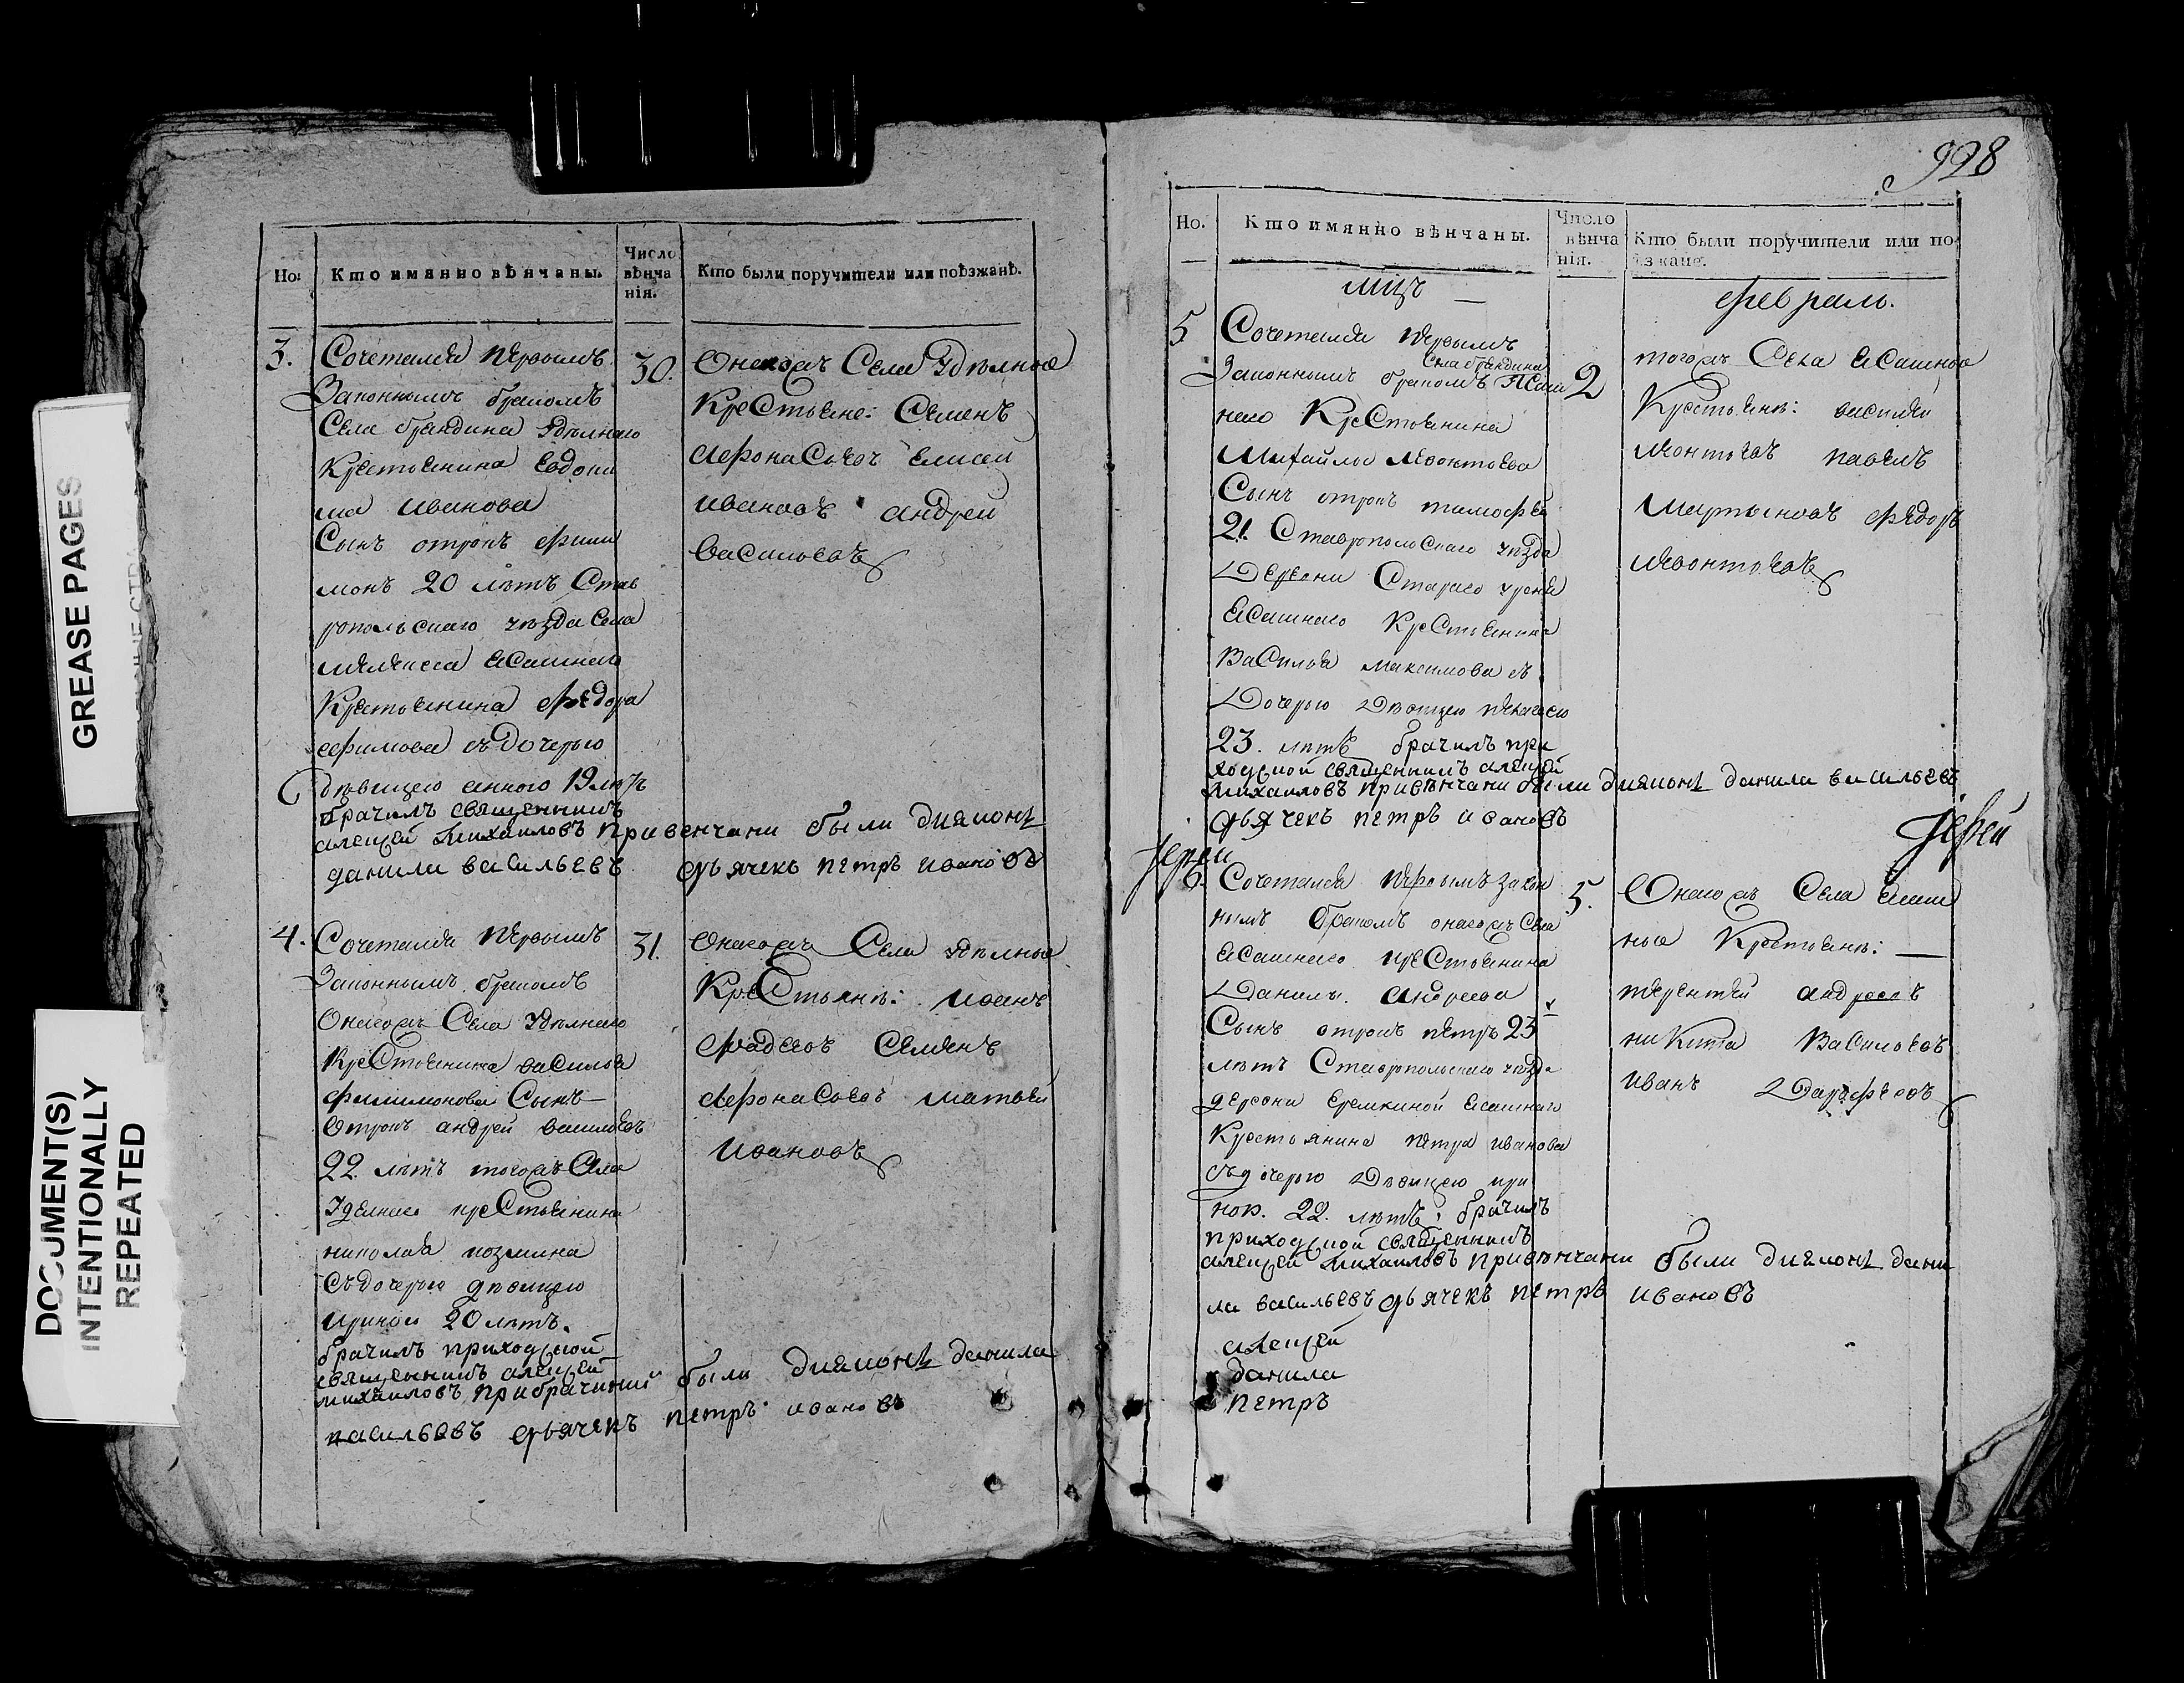 GREASE PAGES
DOCUMENT(S)
INTENTIONALLY
REPEATED
Но:
Кто имянно вѣнчаны.
Число
вѣнча
нія.
Кто были поручители или поѣзжанѣ.
3.
Сочетался первымъ
Законнымъ бракомъ
Села брандина Удѣлнаго
Крестьянина Евдоки
ма иванова
Сынъ отрокъ фили
монъ 20 лѣтъ Став
ропольскаго уѣзда Села
мелекеса Ясашнаго
Крестьянина федора
ефимова съ дочерью
дѣвицею анною 19 лѣтъ
брачилъ священникъ
алеѯей михаиловъ привенчани были дияконъ
данила васильевъ дьячекъ петръ ивановъ
30.
Онагожъ Села Удѣлные
КреСтьяне: Семенъ
Афонасьевъ Елисеи
ивановъ андреи
василъевъ
4.
Сочетался первымъ
Законнымъ бракомъ
Онагожъ Села Удѣлнаго
КреСтьянина василья
филимонова Сынъ
Отрокъ андреи васильевъ
22 лѣтъ тогожъ Села
Уделнаго креСтьянина
николая козмина
Съ дочерью дѣвицею
ириною 20 лѣтъ.
брачилъ приходской
священникъ алеѯей
михаиловъ, при брачинии были дияконъ данила
василъевъ дьячекъ петръ ивановъ
31.
Онагожъ Села Удѣлные
КреСтьянѣ: иванъ
фадеевъ Семенъ
Афонасьевъ матвеи
ивановъ
928
Но.
Кто имянно вѣнчаны.
Число
вѣнча
нія.
Кто были поручители или по
ѣзжане.
мцъ
февраль.
5
Сочетался первымъ
Села брандина
Законнымъ бракомъ ЯСаш
наго КреСтьянина
Михайлы леонтьева
Сынъ отрокъ тимофеи
21. Ставропольскаго уѣзда
Деревни Стараго
ЯСашнаго КреСтьянина
ВаСилья максимова съ
Дочерью Дѣвицею пелагеею
23. лѣтъ брачилъ при
ходской священникъ алеѯей
михаиловъ привѣнчани были дияконъ данила василъевъ
дьячекъ петръ ивановъ
2
тогожъ Села ЯСашные
Крестьянѣ: василеи
леонтьевъ павелъ
мартыновъ федоръ
леонтьевъ
Іерей
Іерей
6.
Сочетался первымъ закон
нымъ бракомъ онагожъ Села
ЯСашнаго креСтьянина
Данилы андреева
Сынъ отрокъ петръ 23
лѣтъ Ставропольскаго уѣзда
деревни Еремкиной Ясашнаго
Крестьянина петра иванова
съ дочерью Дѣвицею ири
ною. 22. лѣтъ, брачилъ
приходской священникъ
алеѯей михаиловъ привѣнчани были дияконъ дани
ла василъевъ дьячекъ петръ ивановъ
5.
Онагожъ Села Ясаш
ные Крестьянѣ:
терентеи андреевъ
никита ВаСильевъ
иванъ
алеѯей
данила
петръ